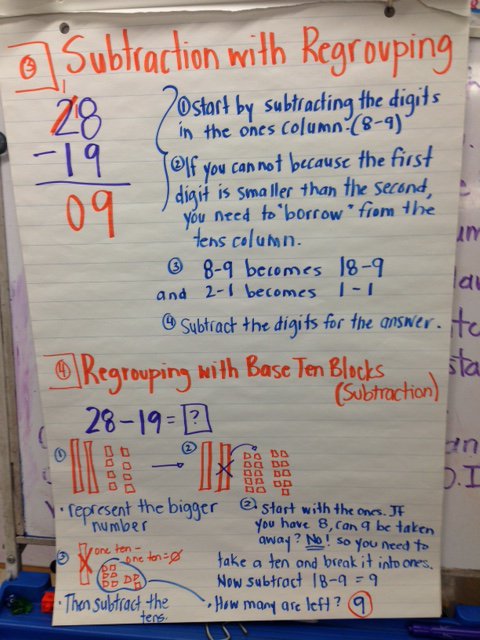 ③ Subtraction with Regrouping
1
2 1 8
- 19
09
① start by subtracting the digits
in the ones column. (8-9)
② If you cannot because the first
digit is smaller than the second,
you need to "borrow" from the
tens column.
③ 8-9 becomes 18-9
and 2-1 becomes 1-1
④ Subtract the digits for the answer.
④ Regrouping with Base Ten Blocks
(Subtraction)
28-19= ?
①
• represent the bigger
number
②
② Start with the ones. If
you have 8, can 9 be taken
away? No! so you need to
take a ten and break it into ones.
Now subtract 18-9 = 9
③ one ten -
one ten = 0
• Then subtract the
tens.
• How many are left? 9